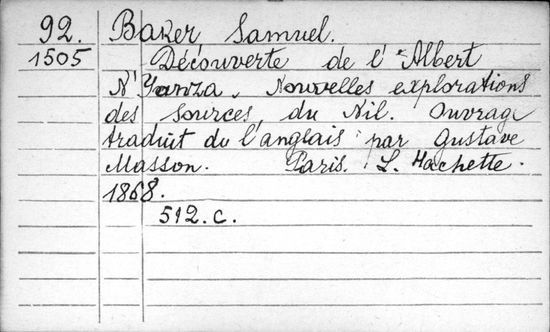 92. Baker Samuel.
1505 Découverte de l'Albert
N'Yanza. Nouvelles explorations
des sources, du Nil. Ouvrage
traduit de l'anglais par Gustave
Masson. Paris. L. Hachette.
1868.
512. c.